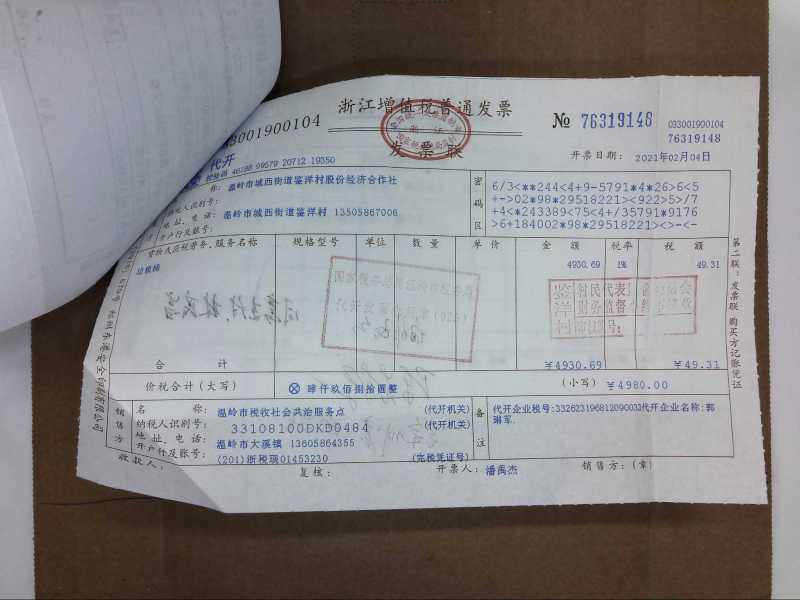 浙江增值税普通发票
033001900104
№ 76319148
033001900104
76319148
发票联
开票日期: 2021年02月04日
代开
46188 99579 20712 19350
称: 温岭市城西街道鉴洋村股份经济合作社
纳税人识别号:
地址、电话: 温岭市城西街道鉴洋村 13505867006
开户行及账号:
密码区
6/3<**244<4+9-5791*4*26>6<5
+->02*98*29518221><922>5>/7
+4<*243389<75<4+/35791*9176
>6+184002*98*29518221<>-<-
货物或应税劳务、服务名称 规格型号 单位 数量 单价 金额 税率 税额
4930.69 1% 49.31
合计 ¥4930.69 ¥49.31
价税合计(大写) ⊗ 肆仟玖佰捌拾圆整 (小写) ¥4980.00
销售方
名称: 温岭市税收社会共治服务点 (代开机关)
纳税人识别号: 33108100DKD0484 (代开机关)
地址、电话: 温岭市大溪镇 13605864355
开户行及账号: (201)浙税现01453230 (完税凭证号)
备注
代开企业税号:332623196812090033代开企业名称:郭
琳军.
收款人:
复核:
开票人: 潘禹杰
销售方:(章)
第二联:发票联 购买方记账凭证